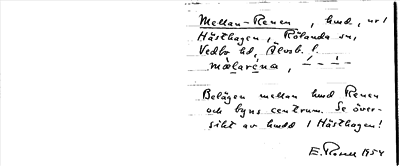 Mellan-Renen, hmd, nr 1
Hästhagen, Rölanda sn,
Vedbo hd, Älvsb. l.
mælaréna, ́– – ́–
Belägen mellan hmd Renen
och byns centrum. Se över-
sikt av hmdd i Hästhagen!
E. Rosell 1954